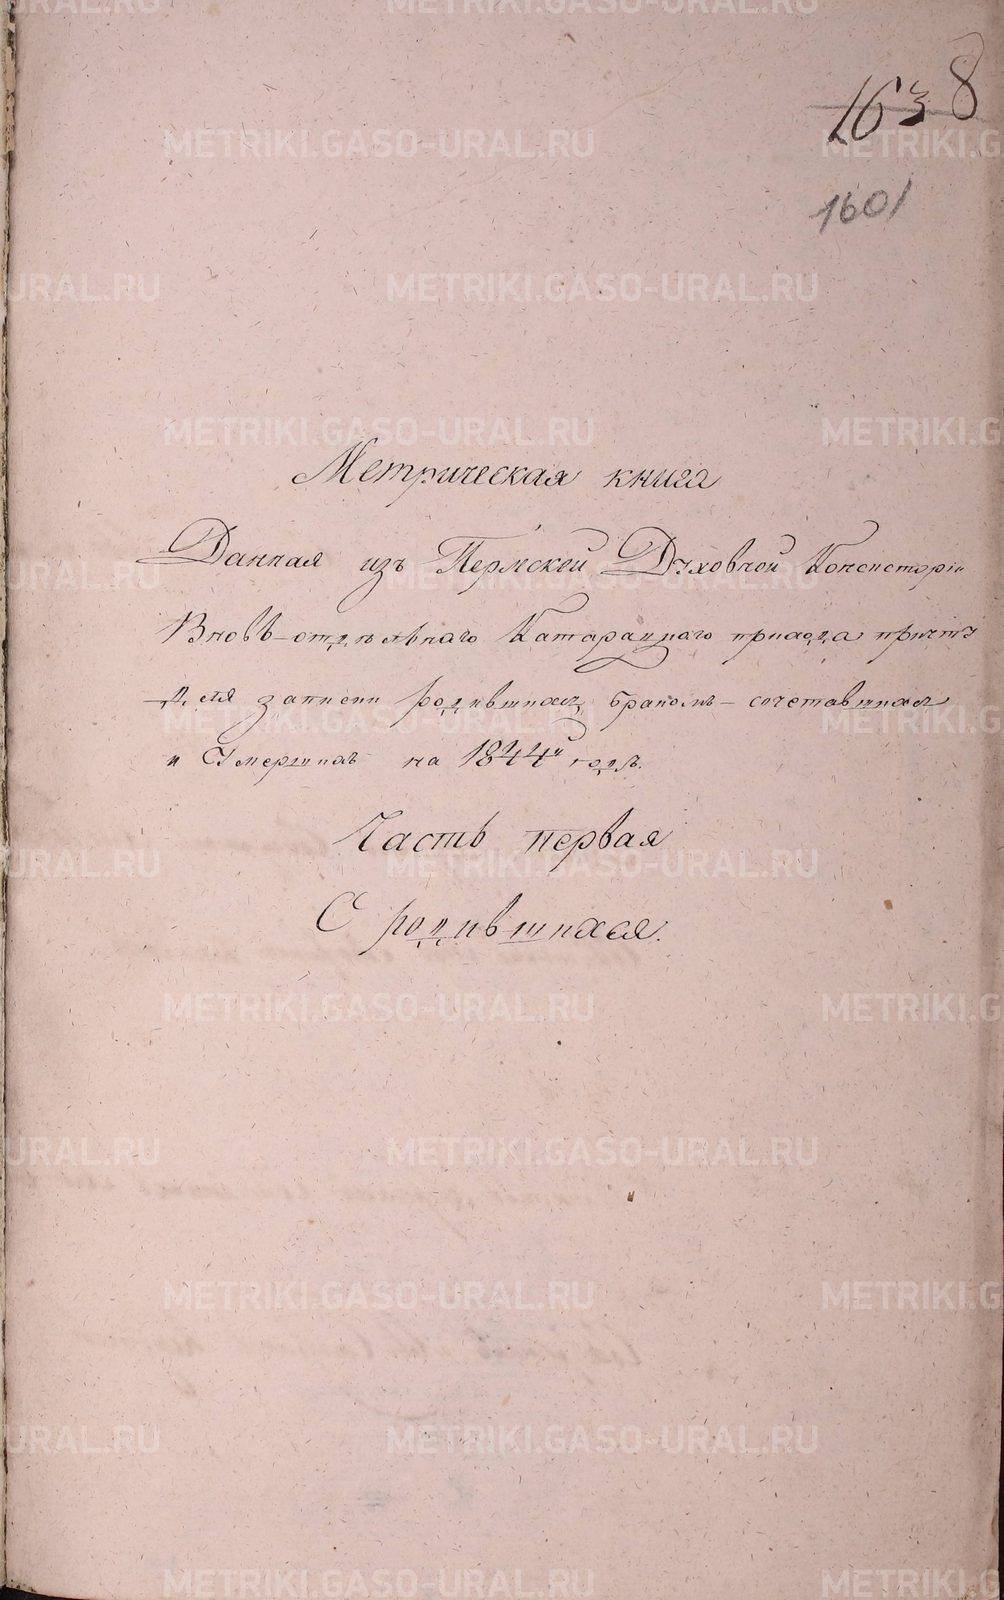 1638
1601
Метрическая книга
Данная изъ Пермской Духовной Консисторіи
Вновь-отдѣльнаго Катарацкаго прихода причту
для записки родившихся, бракомъ-сочетавшихся
и Умершихъ на 1844й годъ.
Часть первая
О родившихся.
METRIKI.GASO-URAL.RU